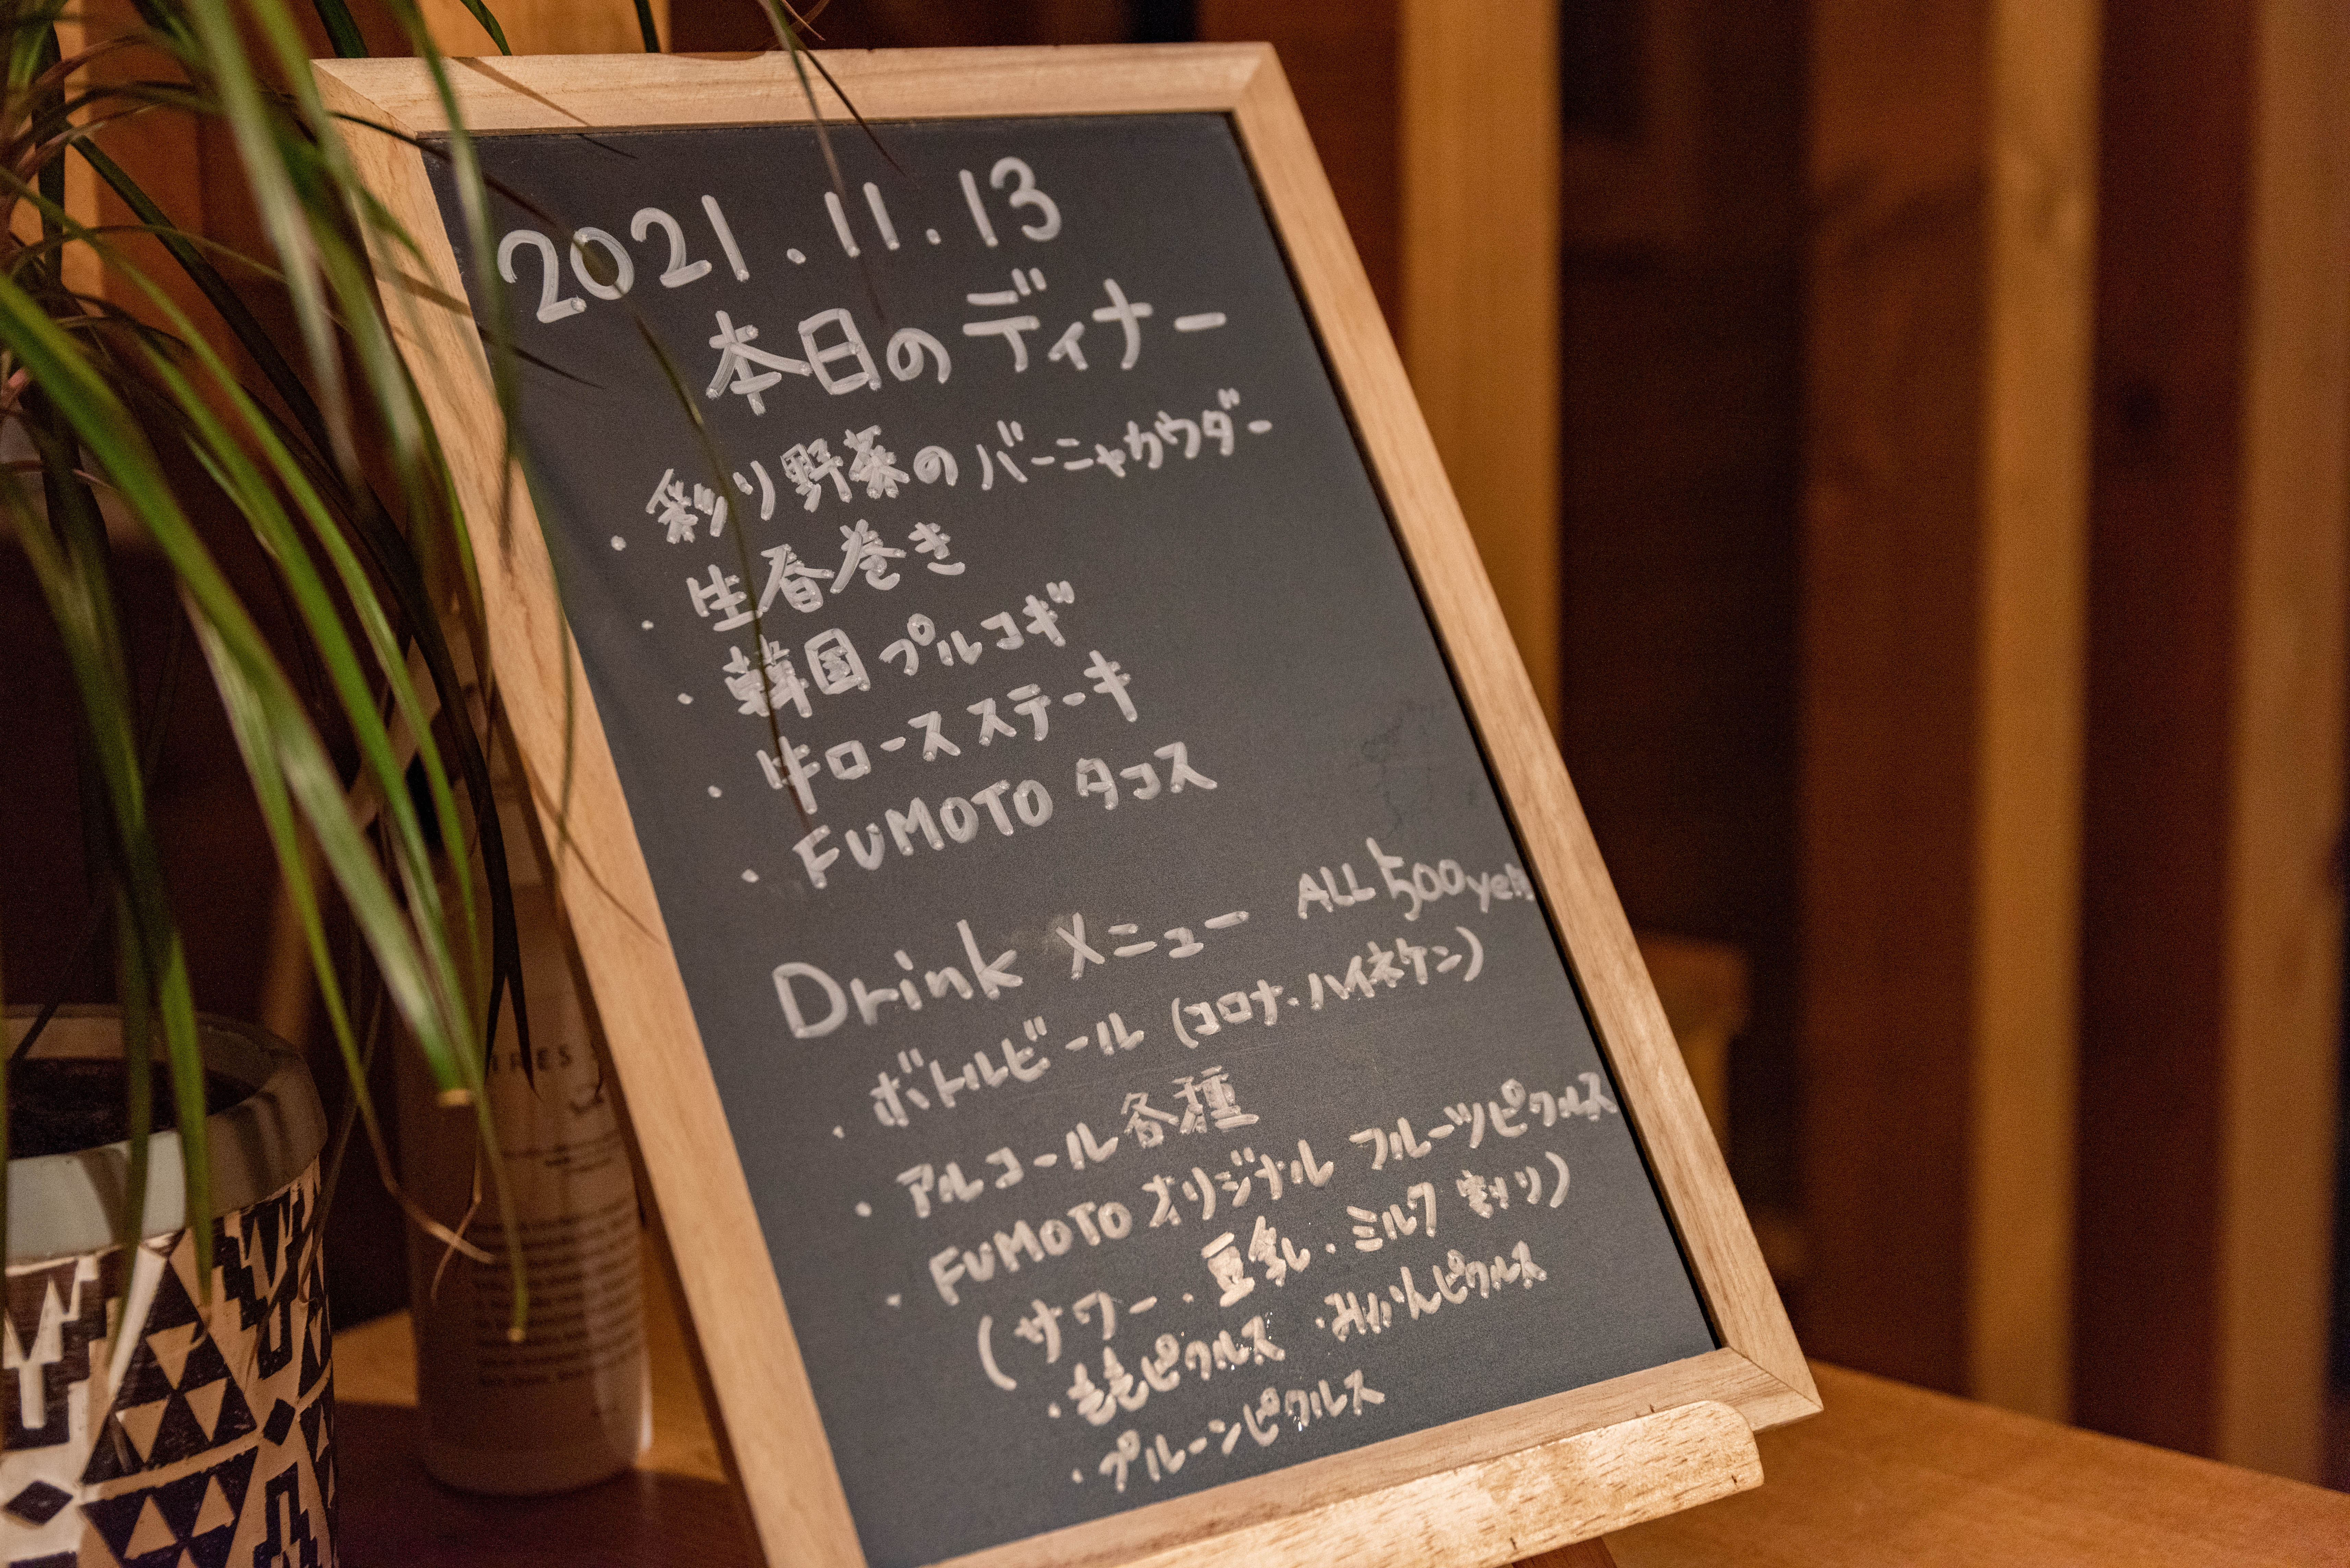 2021.11.13
本日のディナー
・彩り野菜のバーニャカウダー
・生春巻き
・韓国プルコギ
・牛ロースステーキ
・FUMOTO タコス
Drink メニュー ALL 500yen
・ボトルビール (コロナ・ハイネケン)
・アルコール各種
・FUMOTO オリジナル フルーツピクルス
(サワー・豆乳・ミルク 割り)
・ももピクルス ・みかんピクルス
・プルーンピクルス